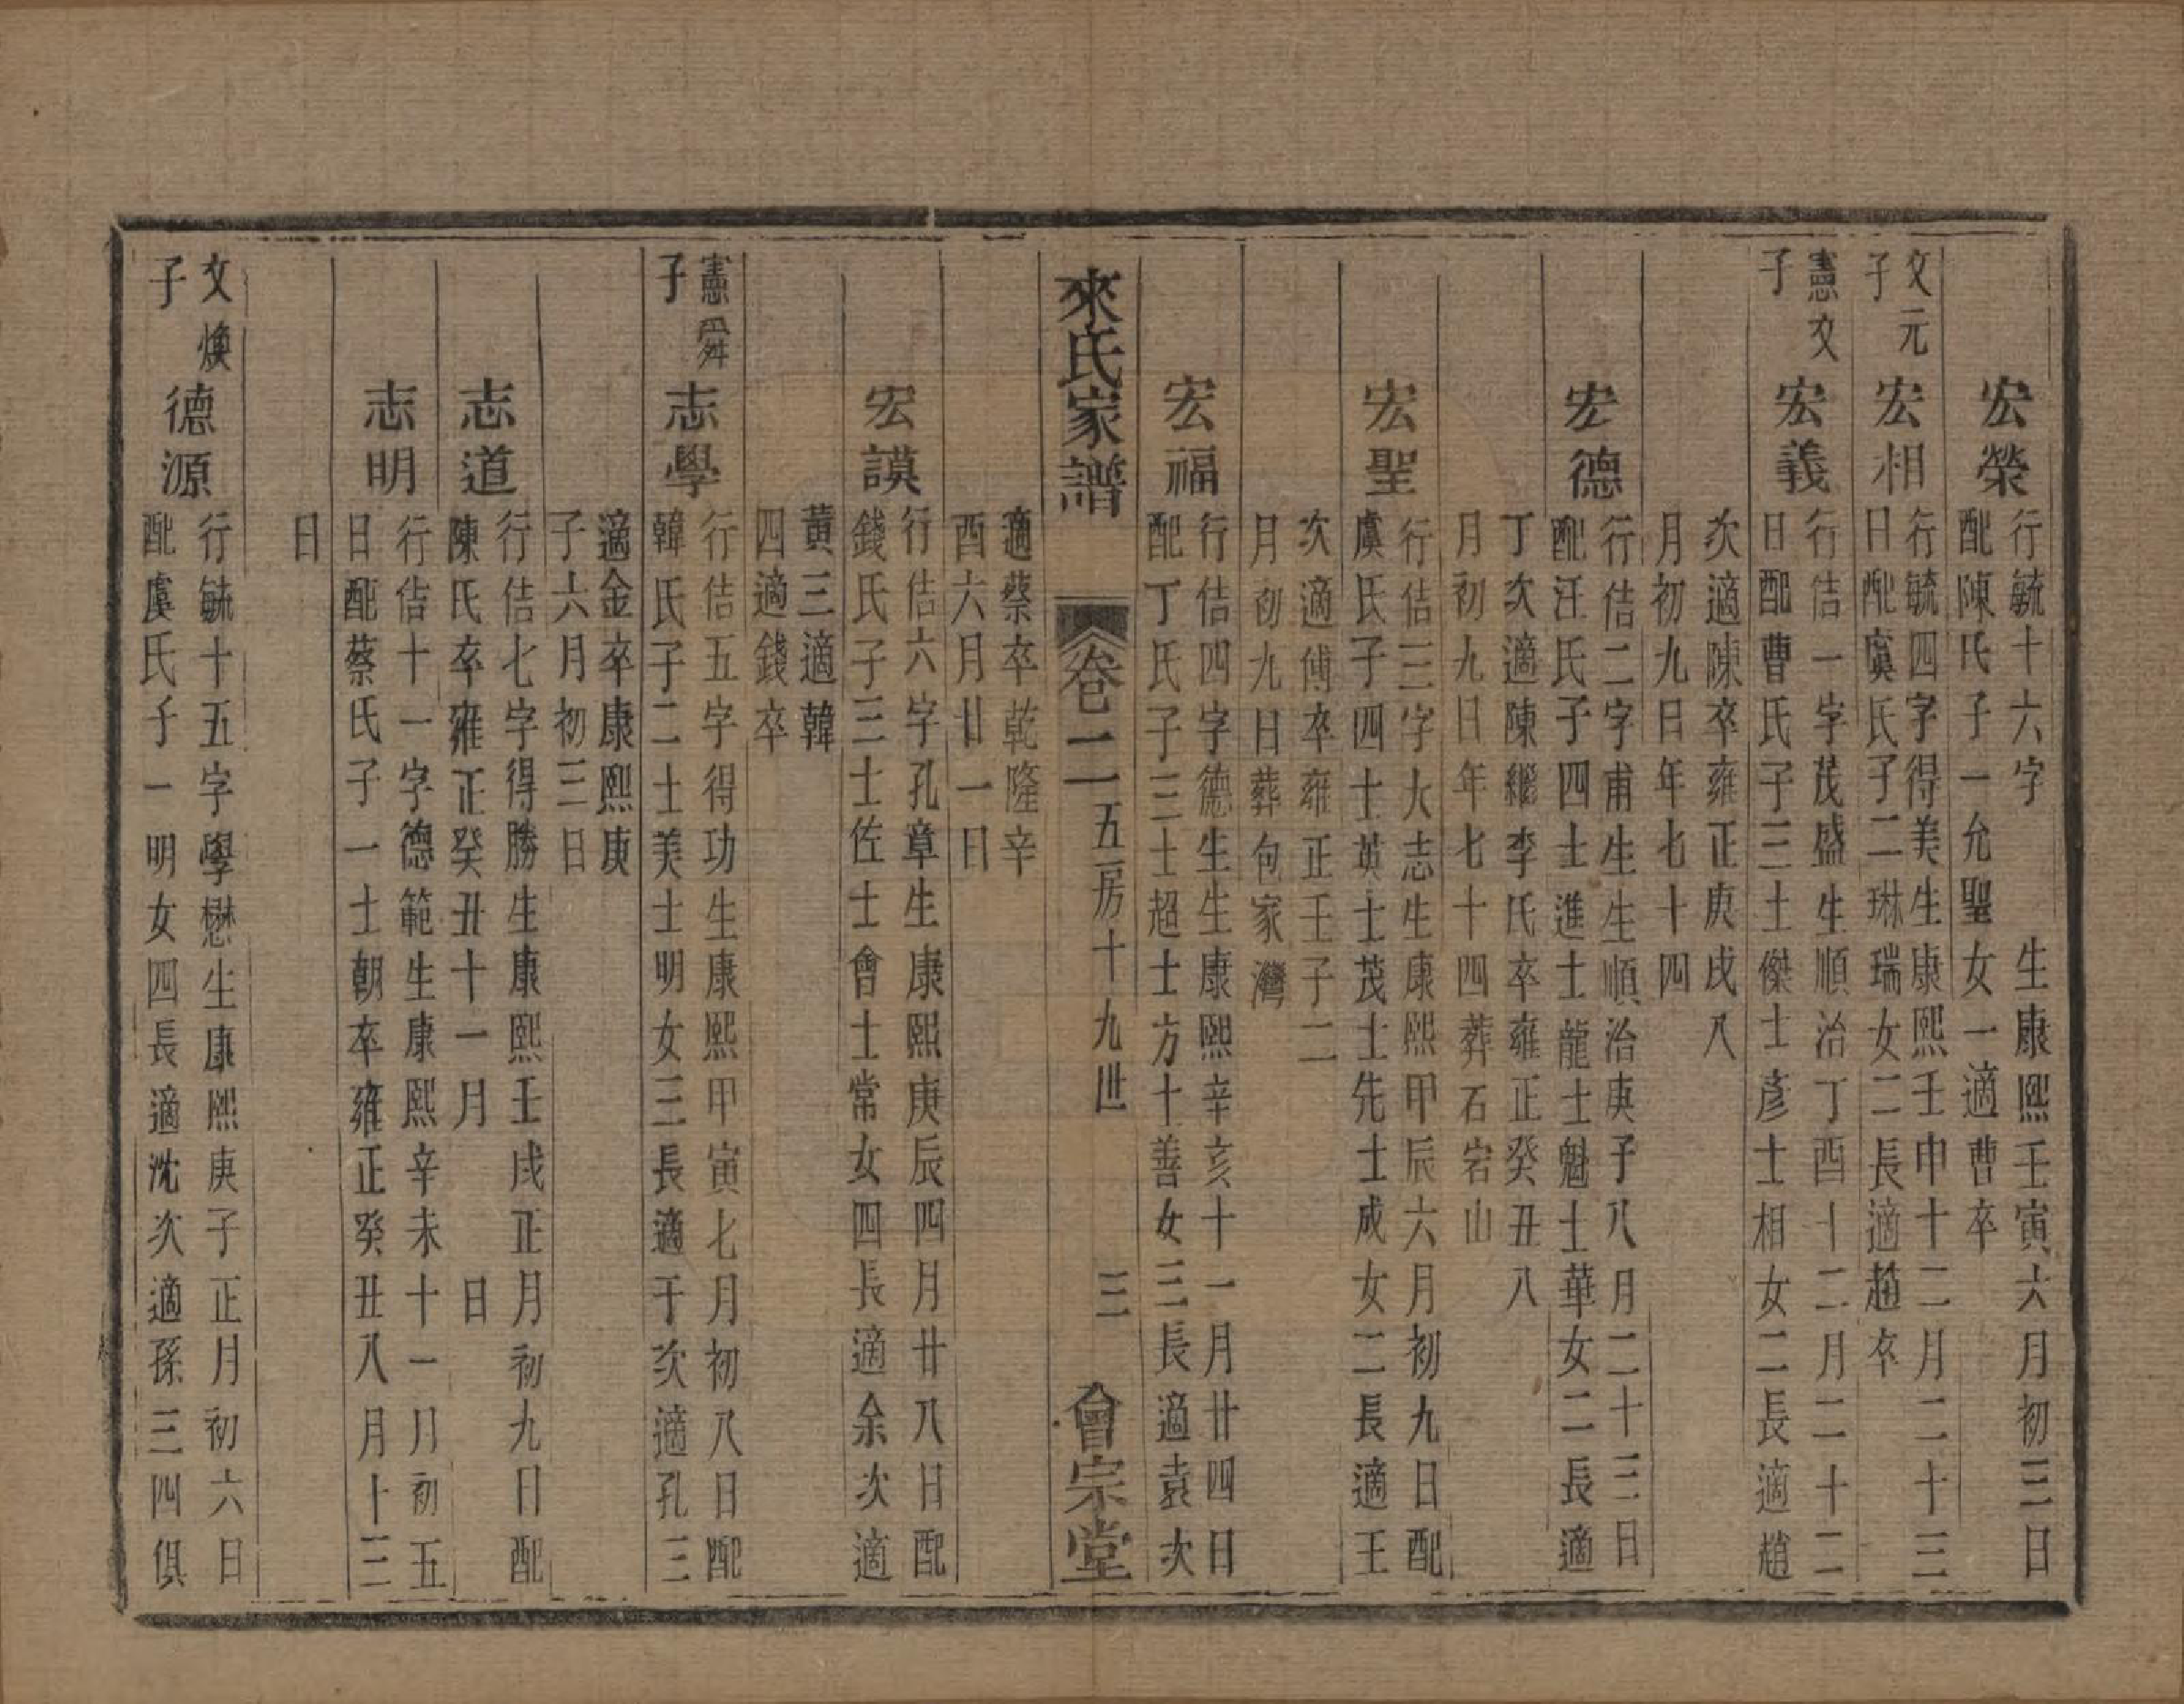 宏榮
行毓十六字　生康熙壬寅六月初三日
配陳氏子一允聖女一適曹卒
文元
子
宏相
行毓四字得美生康熙壬申十二月二十三
日配虞氏子二琳瑞女二長適趙卒
憲文
子
宏義
行佶一字茂盛生順治丁酉十二月二十二
日配曹氏子三士傑士彥士相女二長適趙
次適陳卒雍正庚戌八
月初九日年七十四
宏德
行佶二字甫生生順治庚子八月二十三日
配汪氏子四士進士龍士魁士華女二長適
丁次適陳繼李氏卒雍正癸丑八
月初九日年七十四葬石宕山
宏聖
行佶三字大志生康熙甲辰六月初九日配
虞氏子四士英士茂士先士成女二長適王
次適傅卒雍正壬子二
月初九日葬包家灣
宏福
行佶四字德生生康熙辛亥十一月廿四日
配丁氏子三士超士方士善女三長適袁次
來氏家譜
卷二
五房十九世
三
會宗堂
適蔡卒乾隆辛
酉六月廿一日
宏謨
行佶六字孔章生康熙庚辰四月廿八日配
錢氏子三士佐士會士常女四長適余次適
黃三適韓
四適錢卒
憲舜
子
志學
行佶五字得功生康熙甲寅七月初八日配
韓氏子二士美士明女三長適于次適孔三
適金卒康熙庚
子六月初三日
志道
行佶七字得勝生康熙壬戌正月初九日配
陳氏卒雍正癸丑十一月　日
志明
行佶十一字德範生康熙辛未十一月初五
日配蔡氏子一士朝卒雍正癸丑八月十三
日
文煥
子
德源
行毓十五字學懋生康熙庚子正月初六日
配虞氏子一明女四長適沈次適孫三四俱